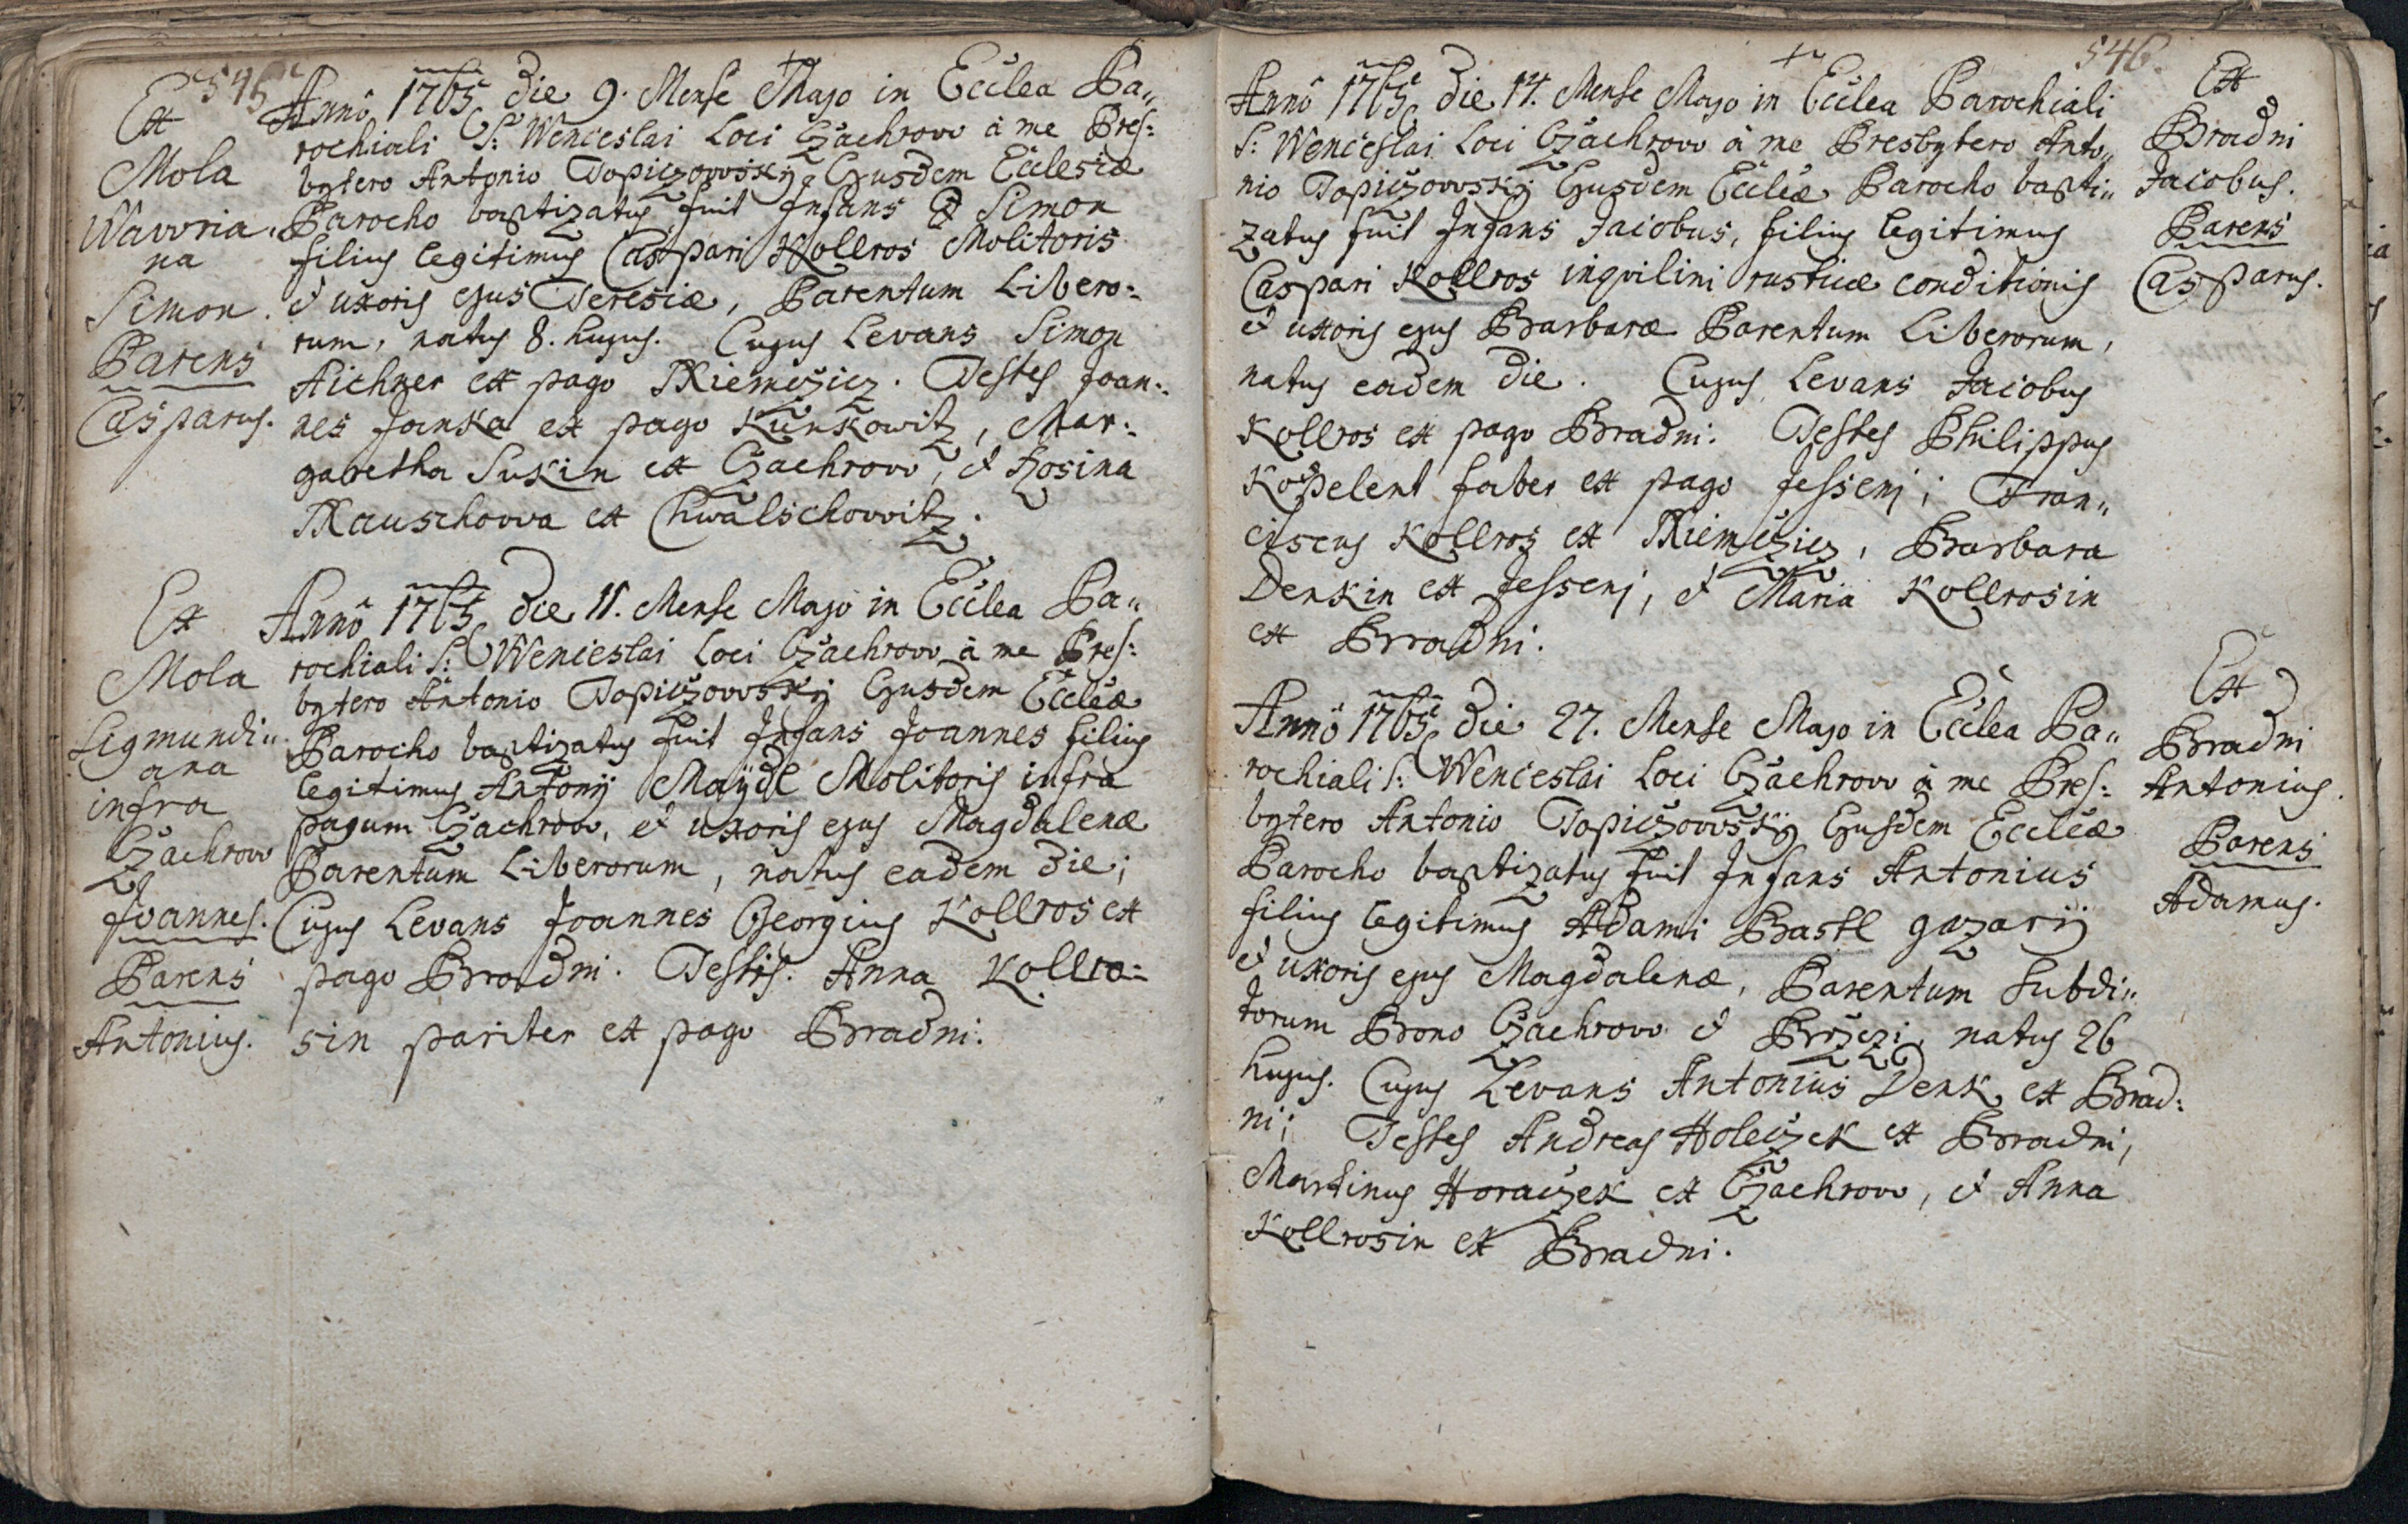 545
Ex
Mola
Wavoria,
na
Simon.
Parens
Casparus.
Annô 1765 die 9. Mense Majo in Ecclea Pa„
rochiali S: Wenceslai Loci Czachrow à me Pres:
bytero Antonio Topiczowsky Ejusdem Ecclesiæ
Parocho baptizatus fuit Infans Simon
filius legitimus Caspari Kollros Molitoris
et uxoris ejus Teresiæ, Parentum Libero:
rum, natus 8. hujus. Cujus Levans Simon
Aichner ex pago Niemczicz. Testes Joan:
nes Janka ex pago Kunkowitz, Mar:
garetha Sukin ex Czachrow, et Rosina
Rauschowa ex Chwalschowitz.
Ex
Mola
Sigmundi„
ana
infra
Czachrow
Joannes.
Parens
Antonius.
Annô 1765 die 11. Mense Majo in Ecclea Pa„
rochiali S: Wenceslai Loci Czachrow à me Pres:
bytero Antonio Topiczowsky Ejusdem Eccleæ
Parocho baptizatus fuit Infans Joannes filius
legitimus Antonij Maÿdl Molitoris infra
pagum Czachrow, et uxoris ejus Magdalenæ
Parentum Liberorum, natus eadem die;
Cujus Levans Joannes Georgius Kollros ex
pago Bradni. Testis. Anna Kollro:
sin pariter ex pago Bradni.
546.
Annô 1765 die 14. Mense Majo in Ecclea Parochiali
S: Wenceslai Loci Czachrow à me Presbytero Anto„
nio Topiczowsky Ejusdem Eccleæ Parocho bapti„
zatus fuit Infans Jacobus, filius legitimus
Caspari Kollros inqvilini rusticæ conditionis
et uxoris ejus Barbaræ Parentum Liberorum,
natus eadem die. Cujus Levans Jacobus
Kollros ex pago Bradni. Testes Philippus
Kopelent faber ex pago Jessenj; Fran„
ciscus Kollros ex Niemczicz, Barbara
Denkin ex Jessenj, et Maria Kollrosin
ex Bradni.
Ex
Bradni
Jacobus.
Parens
Casparus.
Annô 1765 die 27. Mense Majo in Ecclea Pa„
rochiali S: Wenceslai Loci Czachrow à me Pres:
bytero Antonio Topiczowsky Ejusdem Eccleæ
Parocho baptizatus fuit Infans Antonius
filius legitimus Adami Bastl gazarij
et uxoris ejus Magdalenæ, Parentum Subdi„
torum Bono Czachrow et Brzczi, natus 26
hujus. Cujus Levans Antonius Denk ex Brad:
ni; Testes Andreas Holeczek ex Bradni,
Martinus Horaczek ex Czachrow, et Anna
Kollrosin ex Bradni.
Ex
Bradni
Antonius.
Parens
Adamus.